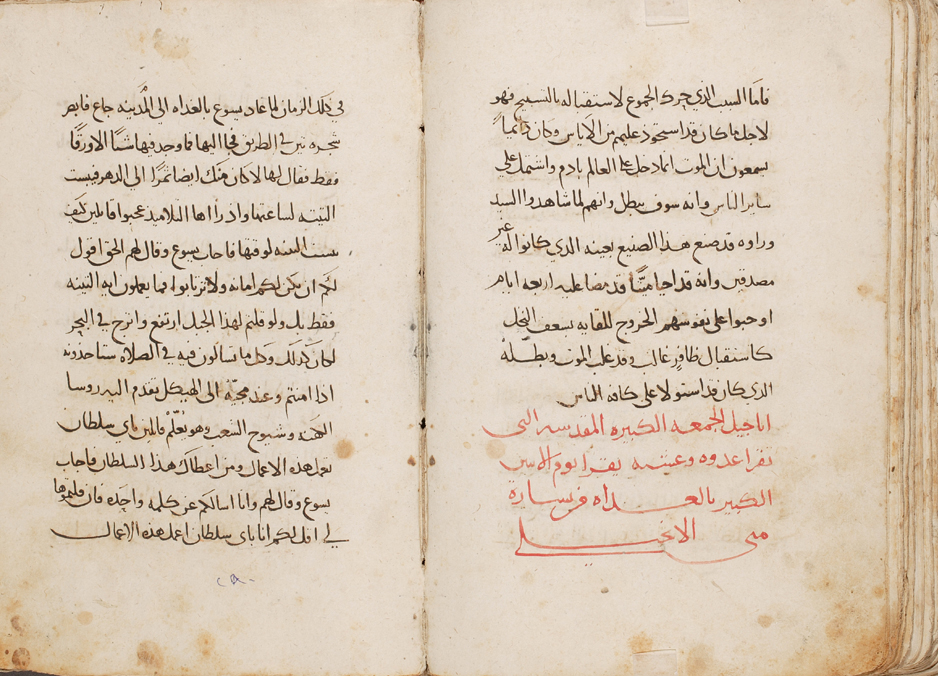 فاما السبب الذي حرك الجموع لاستقباله بالتسبيح فهو
لاجل ما كان قد استحود عليهم من الاياس وكان دايما
يسمعون ان الموت انما دخل على العالم بادم واشتمل على
ساير الناس وانه سوف يبطل وانهم لما شاهدوا السيد
وراوه قد صنع هذا الصنيع بعينه الدي كانوا له غير
مصدقين وانه قد احيا ميتًا قد مضا عليه اربعه ايام
اوجبوا على نفوسهم الخروج للقايه بسعف النخل
كاستقبال ظافرٍ غالب وقد غلب الموت وبطّله
الدي كان قد استولا على كافة الناس
اناجيل الجمعه الكبيره المقدسه التي
تقرا غدوه وعشيه يقرا يوم الاثنين
الكبير بالغداه من بشارة
متى الانجيلي
في ذلك الزمان لما عاد يسوع بالغداه الى المدينه جاع فابصر
شجره تين في الطريق فجا اليها فما وجد فيها شيًا الا ورقًا
فقط فقال لها لا كان منك ايضا ثمرًا الى الدهر فيبست
التينه لساعتها واذ راها التلاميذ عجبوا قايلين كيف
يبست التينه لوقتها فاجاب يسوع وقال لهم الحق اقول
لكم ان يكن لكم امانه ولا ترتابوا فما يعملون ايه التينه
فقط بل ولو قلتم لهذا الجبل ارتفع وانزح في البحر
لكان كذلك وكل ما تسالون فيه في الصلاه ستاخذونه
اذا امنتم وعند مجيّه الى الهيكل تقدم اليه روسا
الكهنه وشيوخ الشعب وهو يُعلّم قايلين باي سلطان
تعمل هذه الاعمال ومن اعطاك هذا السلطان فاجاب
يسوع وقال لهم وانا اسالكم عن كلمه واحده فان قلتموها
لي اقل لكم انا باي سلطان اعمل هذه الاعمال